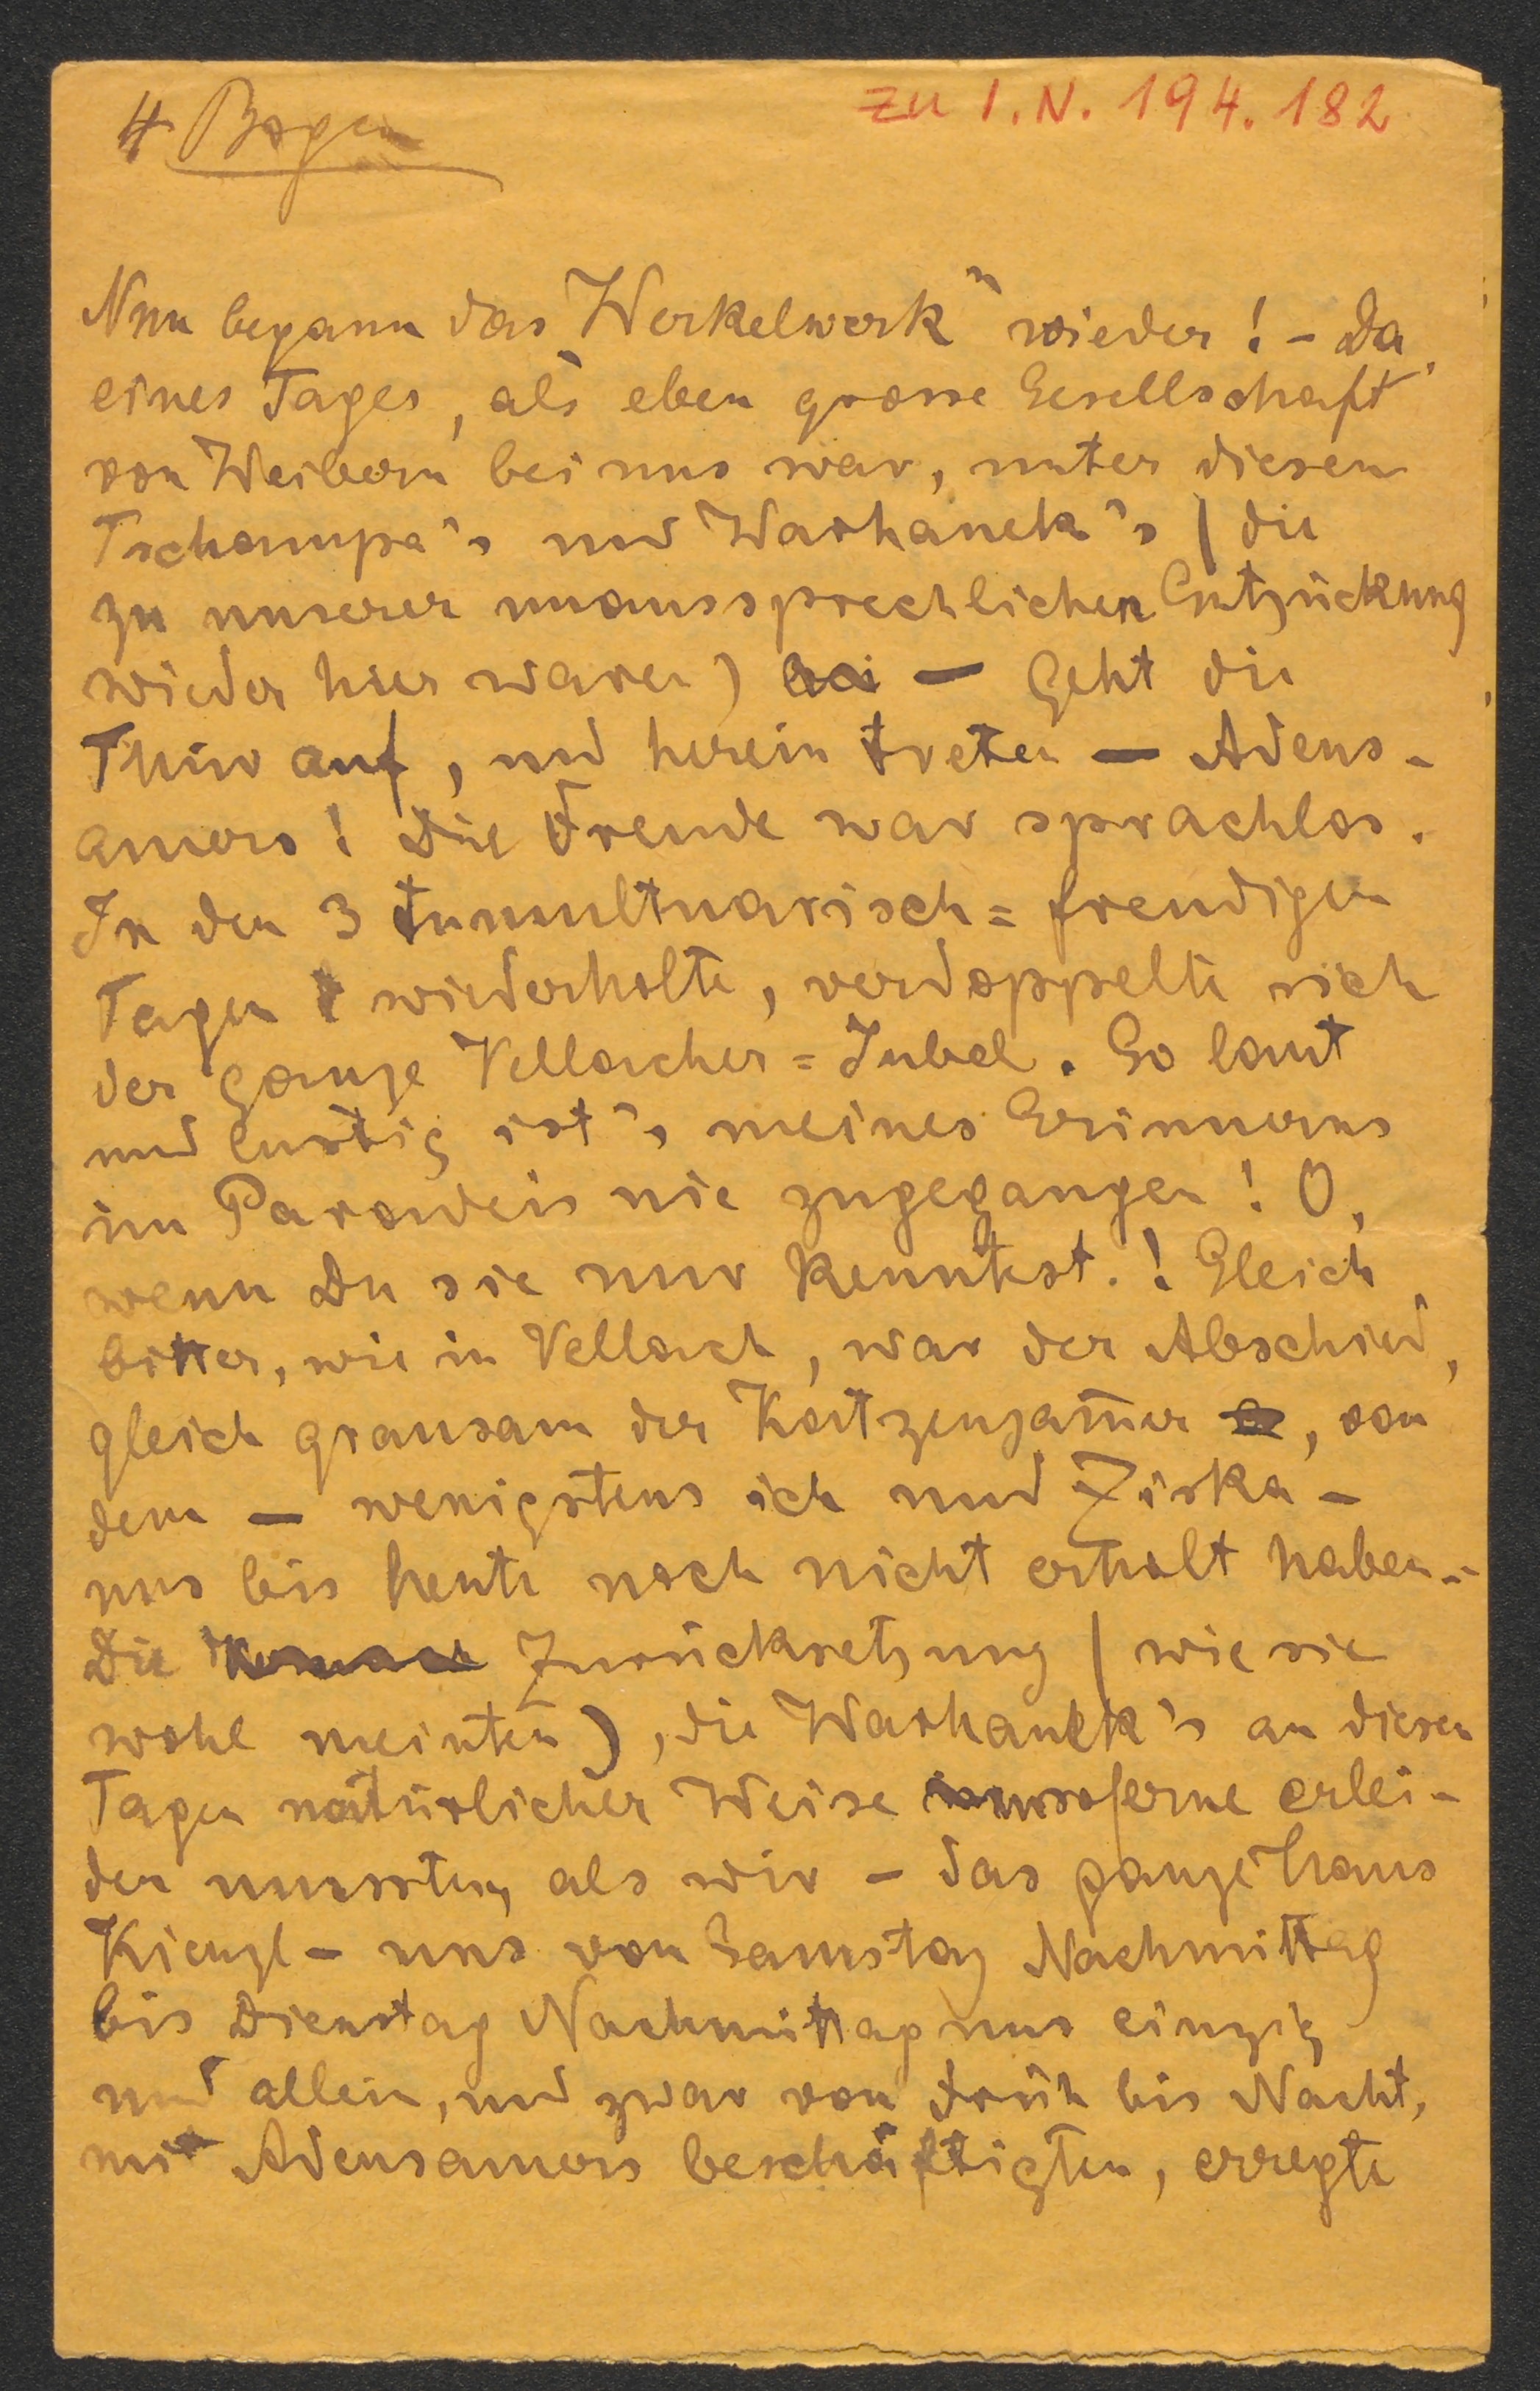 4 Bogen
zu I.N. 194.182
Nun begann das "Werkelwerk" wieder! - Da,
eines Tages, als eben grosse Gesellschaft
von Weibern bei uns war, unter diesen
Tschampa's und Warhanek's (die
zu unserer unaussprechlichen Entzückung
wieder hier waren) — geht die
Thür auf, und herein treten — Adens-
amers! Die Freude war sprachlos.
In den 3 tumultuarisch=freudigen
Tagen wiederholte, verdoppelte sich
der ganze Vellacher=Jubel. So laut
und lustig ist's meines Erinnerns
im Paradeis nie zugegangen! O,
wenn Du sie nur kenntest.! Gleich
bitter, wie in Vellach, war der Abschied,
gleich grausam der Katzenjam̄er, von
dem — wenigstens ich und Ziska -
uns bis heute noch nicht erholt haben.-
Die Zurücksetzung (wie sie
wohl meinten), die Warhanek's an diesen
Tagen natürlicher Weise insoferne erlei-
den mussten, als wir - das ganze Haus
Kienzl - uns von Samstag Nachmittag
bis Dienstag Nachmittag nur einzig
und allein, und zwar von Früh bis Nacht,
mit Adensamers beschäftigten, erregte